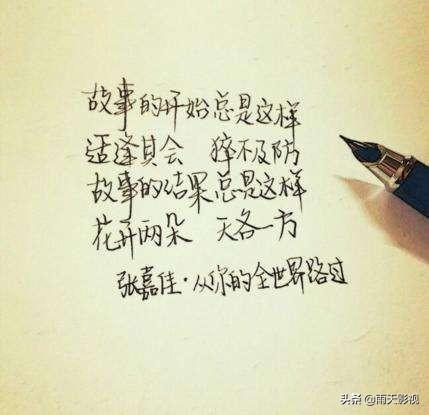 故事的开始总是这样
适逢其会 猝不及防
故事的结果总是这样
花开两朵 天各一方
张嘉佳·从你的全世界路过
头条 @雨天影视